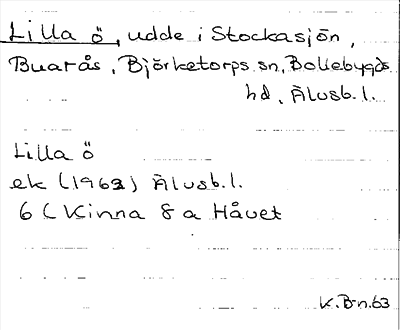 Lilla ö, udde i Stockasjön,
Buarås, Björketorps sn, Bollebygds
hd, Älvsb. l.
Lilla ö
ek (1963) Älvsb. l.
6 ( Kinna 8 a Håvet
K. B-n. 63